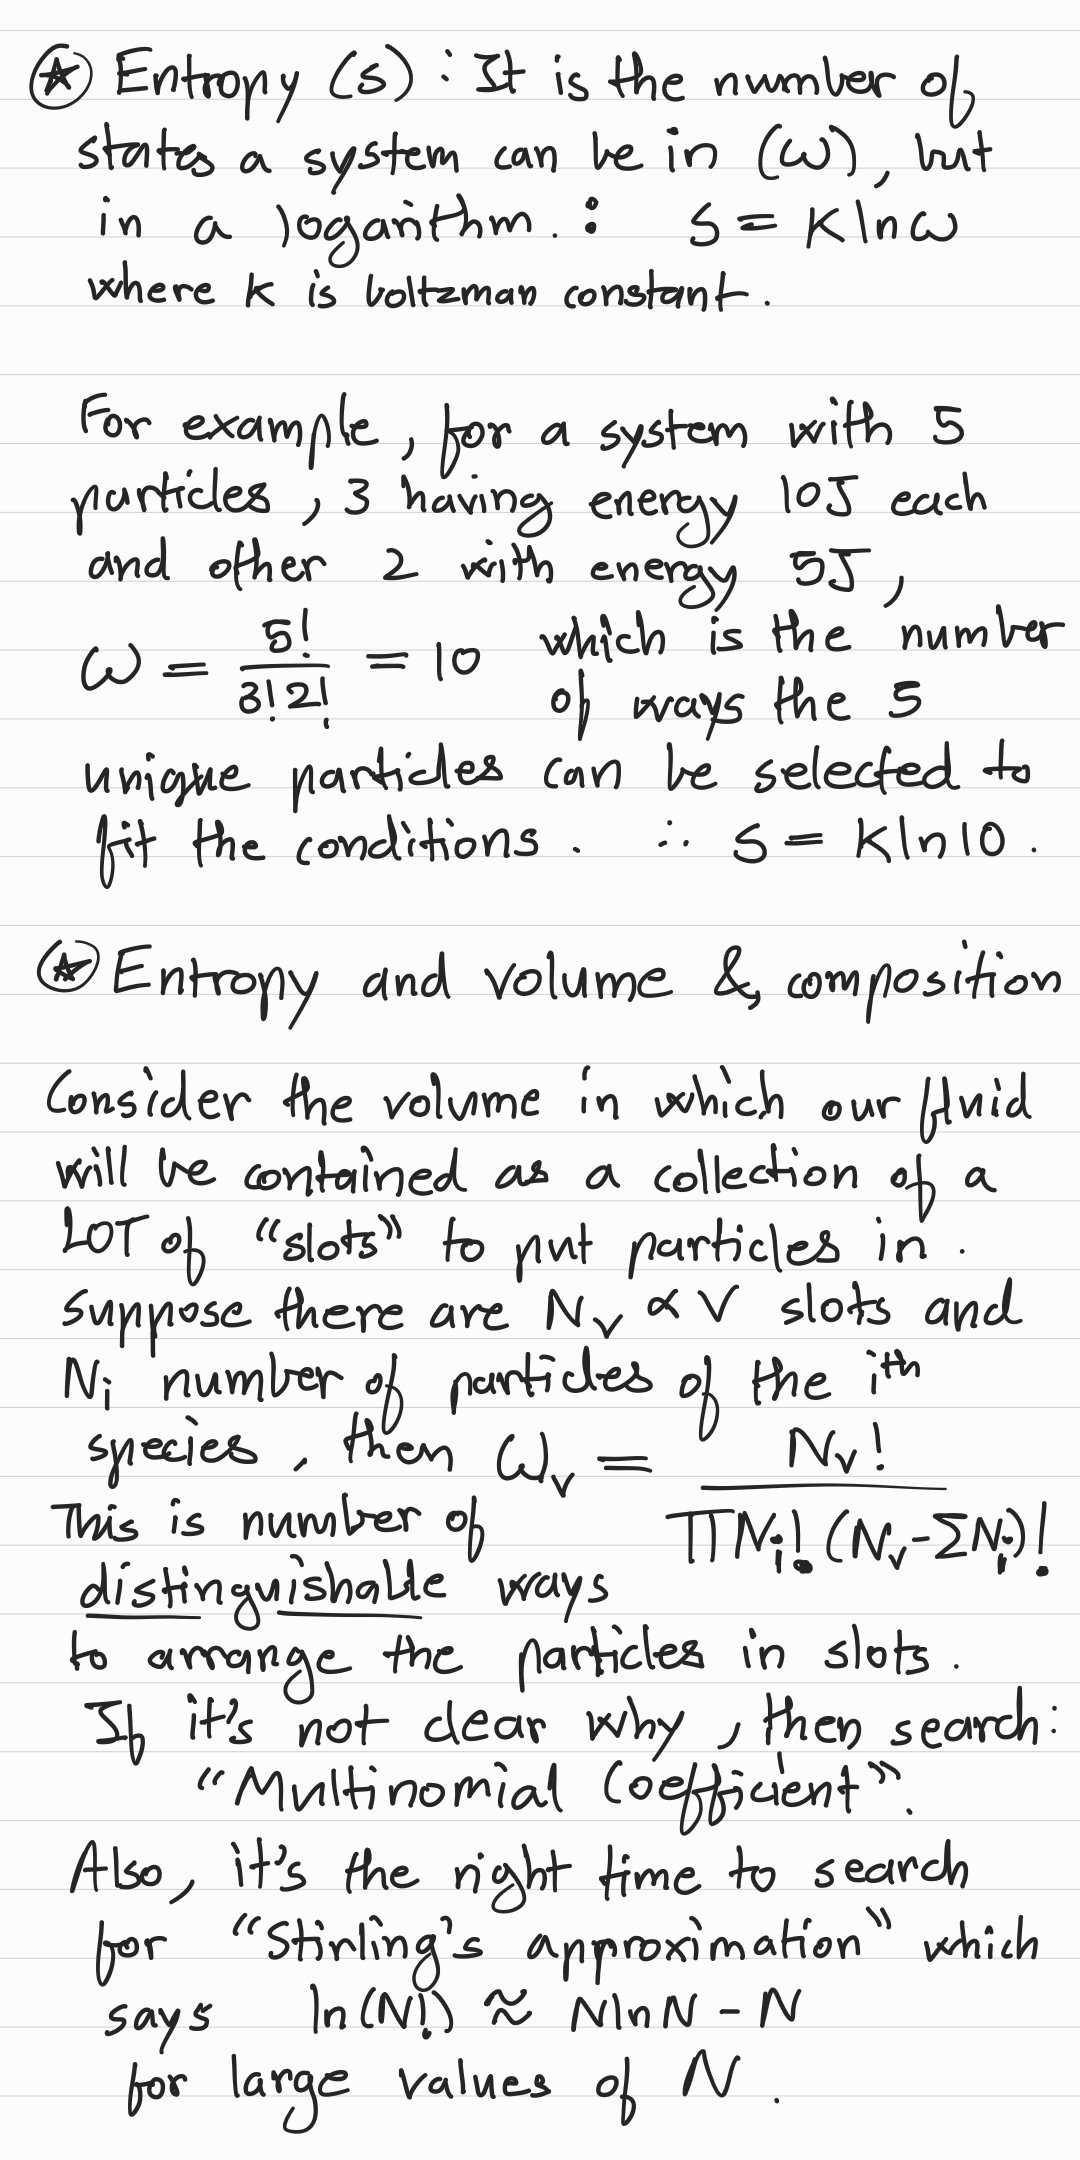 ⍟ Entropy (s) : It is the number of
states a system can be in (ω), but
in a logarithm. : S = k ln ω
where k is boltzman constant.
For example, for a system with 5
particles, 3 having energy 10J each
and other 2 with energy 5J,
ω = 5!/(3!2!) = 10 which is the number
of ways the 5
unique particles can be selected to
fit the conditions. ∴ S = k ln 10.
⍟ Entropy and volume & composition
Consider the volume in which our fluid
will be contained as a collection of a
LOT of “slots” to put particles in.
suppose there are N_v ∝ V slots and
N_i number of particles of the i^th
species, then ω_v = N_v! / (ΠN_i! (N_v - ΣN_i)!)
This is number of
distinguishable ways
to arrange the particles in slots.
If it's not clear why, then search:
“Multinomial Coefficient”.
Also, it's the right time to search
for “Stirling's approximation” which
says ln(N!) ≈ N ln N - N
for large values of N.